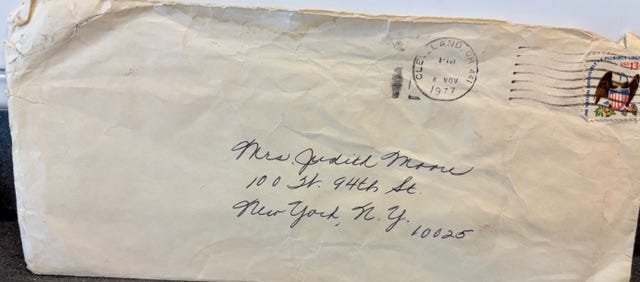 CLEVELAND, OH 441
PM
4 NOV
1977
13c
Mrs. Judith Moore
100 W. 94th St.
New York, N.Y.
10025